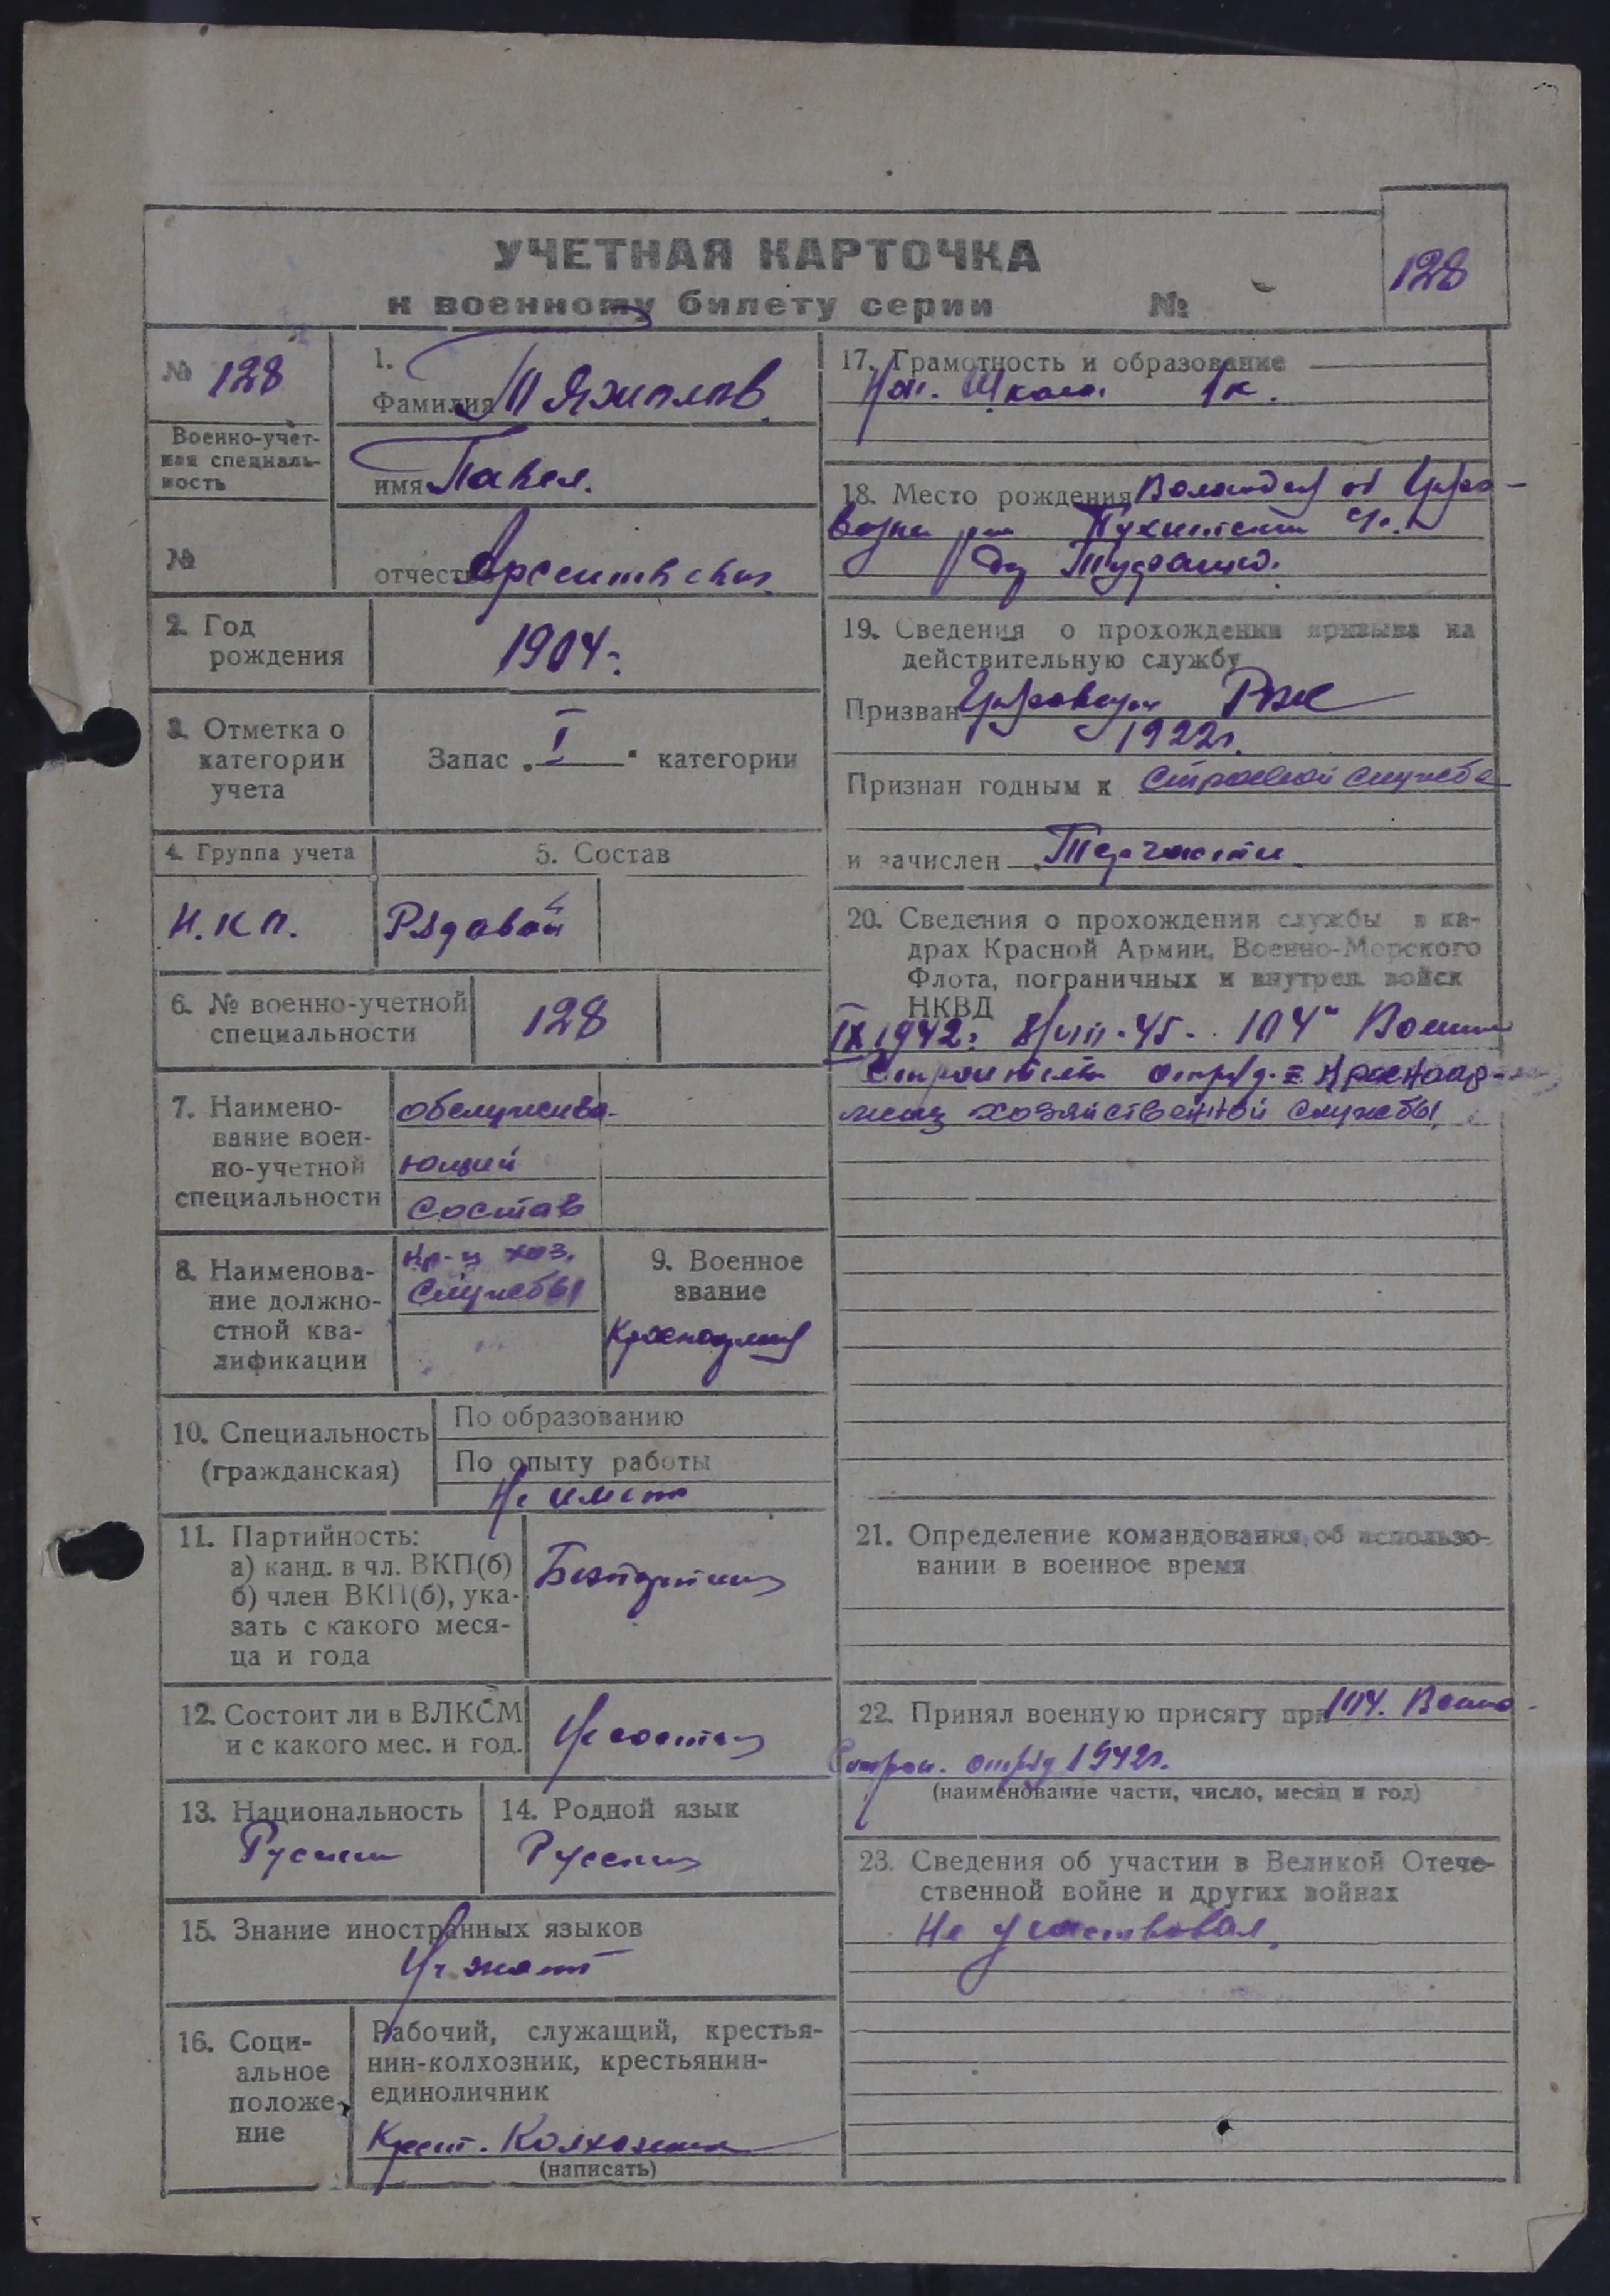 УЧЕТНАЯ КАРТОЧКА
к военному билету серии №
128
№ 128
Военно-учет-
ная специаль-
ность
№
1.
Фамилия Тяжиалов
имя Павел.
отчество
2. Год
рождения
1904г.
3. Отметка о
категории
учета
Запас „I“ категории
4. Группа учета
5. Состав
Н.К.П.
Рядовой
6. № военно-учетной
специальности
128
7. Наимено-
вание воен-
но-учетной
специальности
обслужива-
ющий
состав
8. Наименова-
ние должно-
стной ква-
лификации
кр-ц хоз.
службы
9. Военное
звание
Красноармеец
10. Специальность
(гражданская)
По образованию
По опыту работы
Не имеет
11. Партийность:
а) канд. в чл. ВКП(б)
б) член ВКП(б), ука-
зать с какого меся-
ца и года
12. Состоит ли в ВЛКСМ
и с какого мес. и год.
Не состоит
13. Национальность
Русский
14. Родной язык
Русский
15. Знание иностранных языков
Не знает
16. Соци-
альное
положе-
ние
Рабочий, служащий, крестья-
нин-колхозник, крестьянин-
единоличник
Крест. Колхозник
(написать)
17. Грамотность и образование
Нач. Школа. 1к.
18. Место рождения
19. Сведения о прохождении призыва на
действительную службу
Призван РВК
1922г.
Признан годным к строевой службе
и зачислен Терчасти
20. Сведения о прохождении службы в ка-
драх Красной Армии, Военно-Морского
Флота, пограничных и внутрен. войск
НКВД
IX 1942г 8/VIII-45. 104й Военно
Строительн отряд. Красноар-
меец хозяйственной службы.
21. Определение командования об использо-
вании в военное время
22. Принял военную присягу при 104. Военно-
Строи. отряд 1942г.
(наименование части, число, месяц и год)
23. Сведения об участии в Великой Отече-
ственной войне и других войнах
Не участвовал.